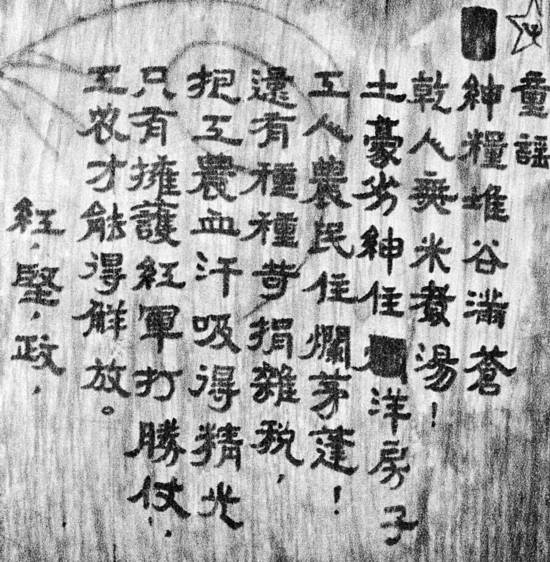 童謡
紳糧堆谷滿蒼
乾人無米煮湯！
土豪劣紳住洋房子
工人農民住爛茅蓬！
還有種種苛捐雜税，
把工農血汗吸得精光
只有擁護紅軍打勝仗，
工农才能得解放。
紅，堅，政，